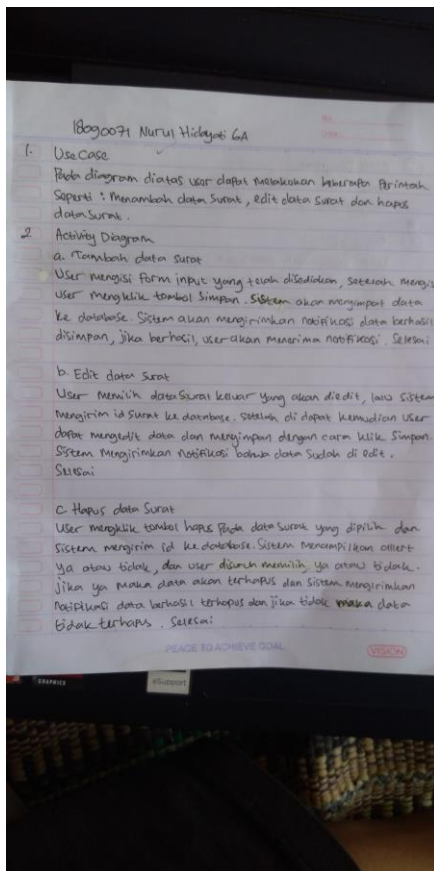 18090071 Nurul Hidayati 6A
1. Use Case
Pada diagram diatas user dapat melakukan beberapa perintah
seperti : Menambah data surat, edit data surat dan hapus
data surat.
2. Activity Diagram
a. Tambah data surat
User mengisi form input yang telah disediakan, setelah mengisi
user mengklik tombol simpan. Sistem akan menyimpat data
ke database. Sistem akan mengirimkan notifikasi data berhasil
disimpan, jika berhasil, user akan menerima notifikasi. Selesai
b. Edit data surat
User memilih data surat keluar yang akan diedit, lalu sistem
mengirim id surat ke database. setelah di dapat kemudian user
dapat mengedit data dan menyimpan dengan cara klik simpan.
Sistem mengirimkan notifikasi bahwa data sudah di edit.
Selesai
c. Hapus data surat
User mengklik tombol hapus pada data surat yang dipilih dan
sistem mengirim id ke database. Sistem menampilkan allert
ya atau tidak, dan user disuruh memilih ya atau tidak.
jika ya maka data akan terhapus dan sistem mengirimkan
notifikasi data berhasil terhapus dan jika tidak maka data
tidak terhapus. Selesai
PEACE TO ACHIEVE GOAL
VISION
GRAPHICS
eSupport